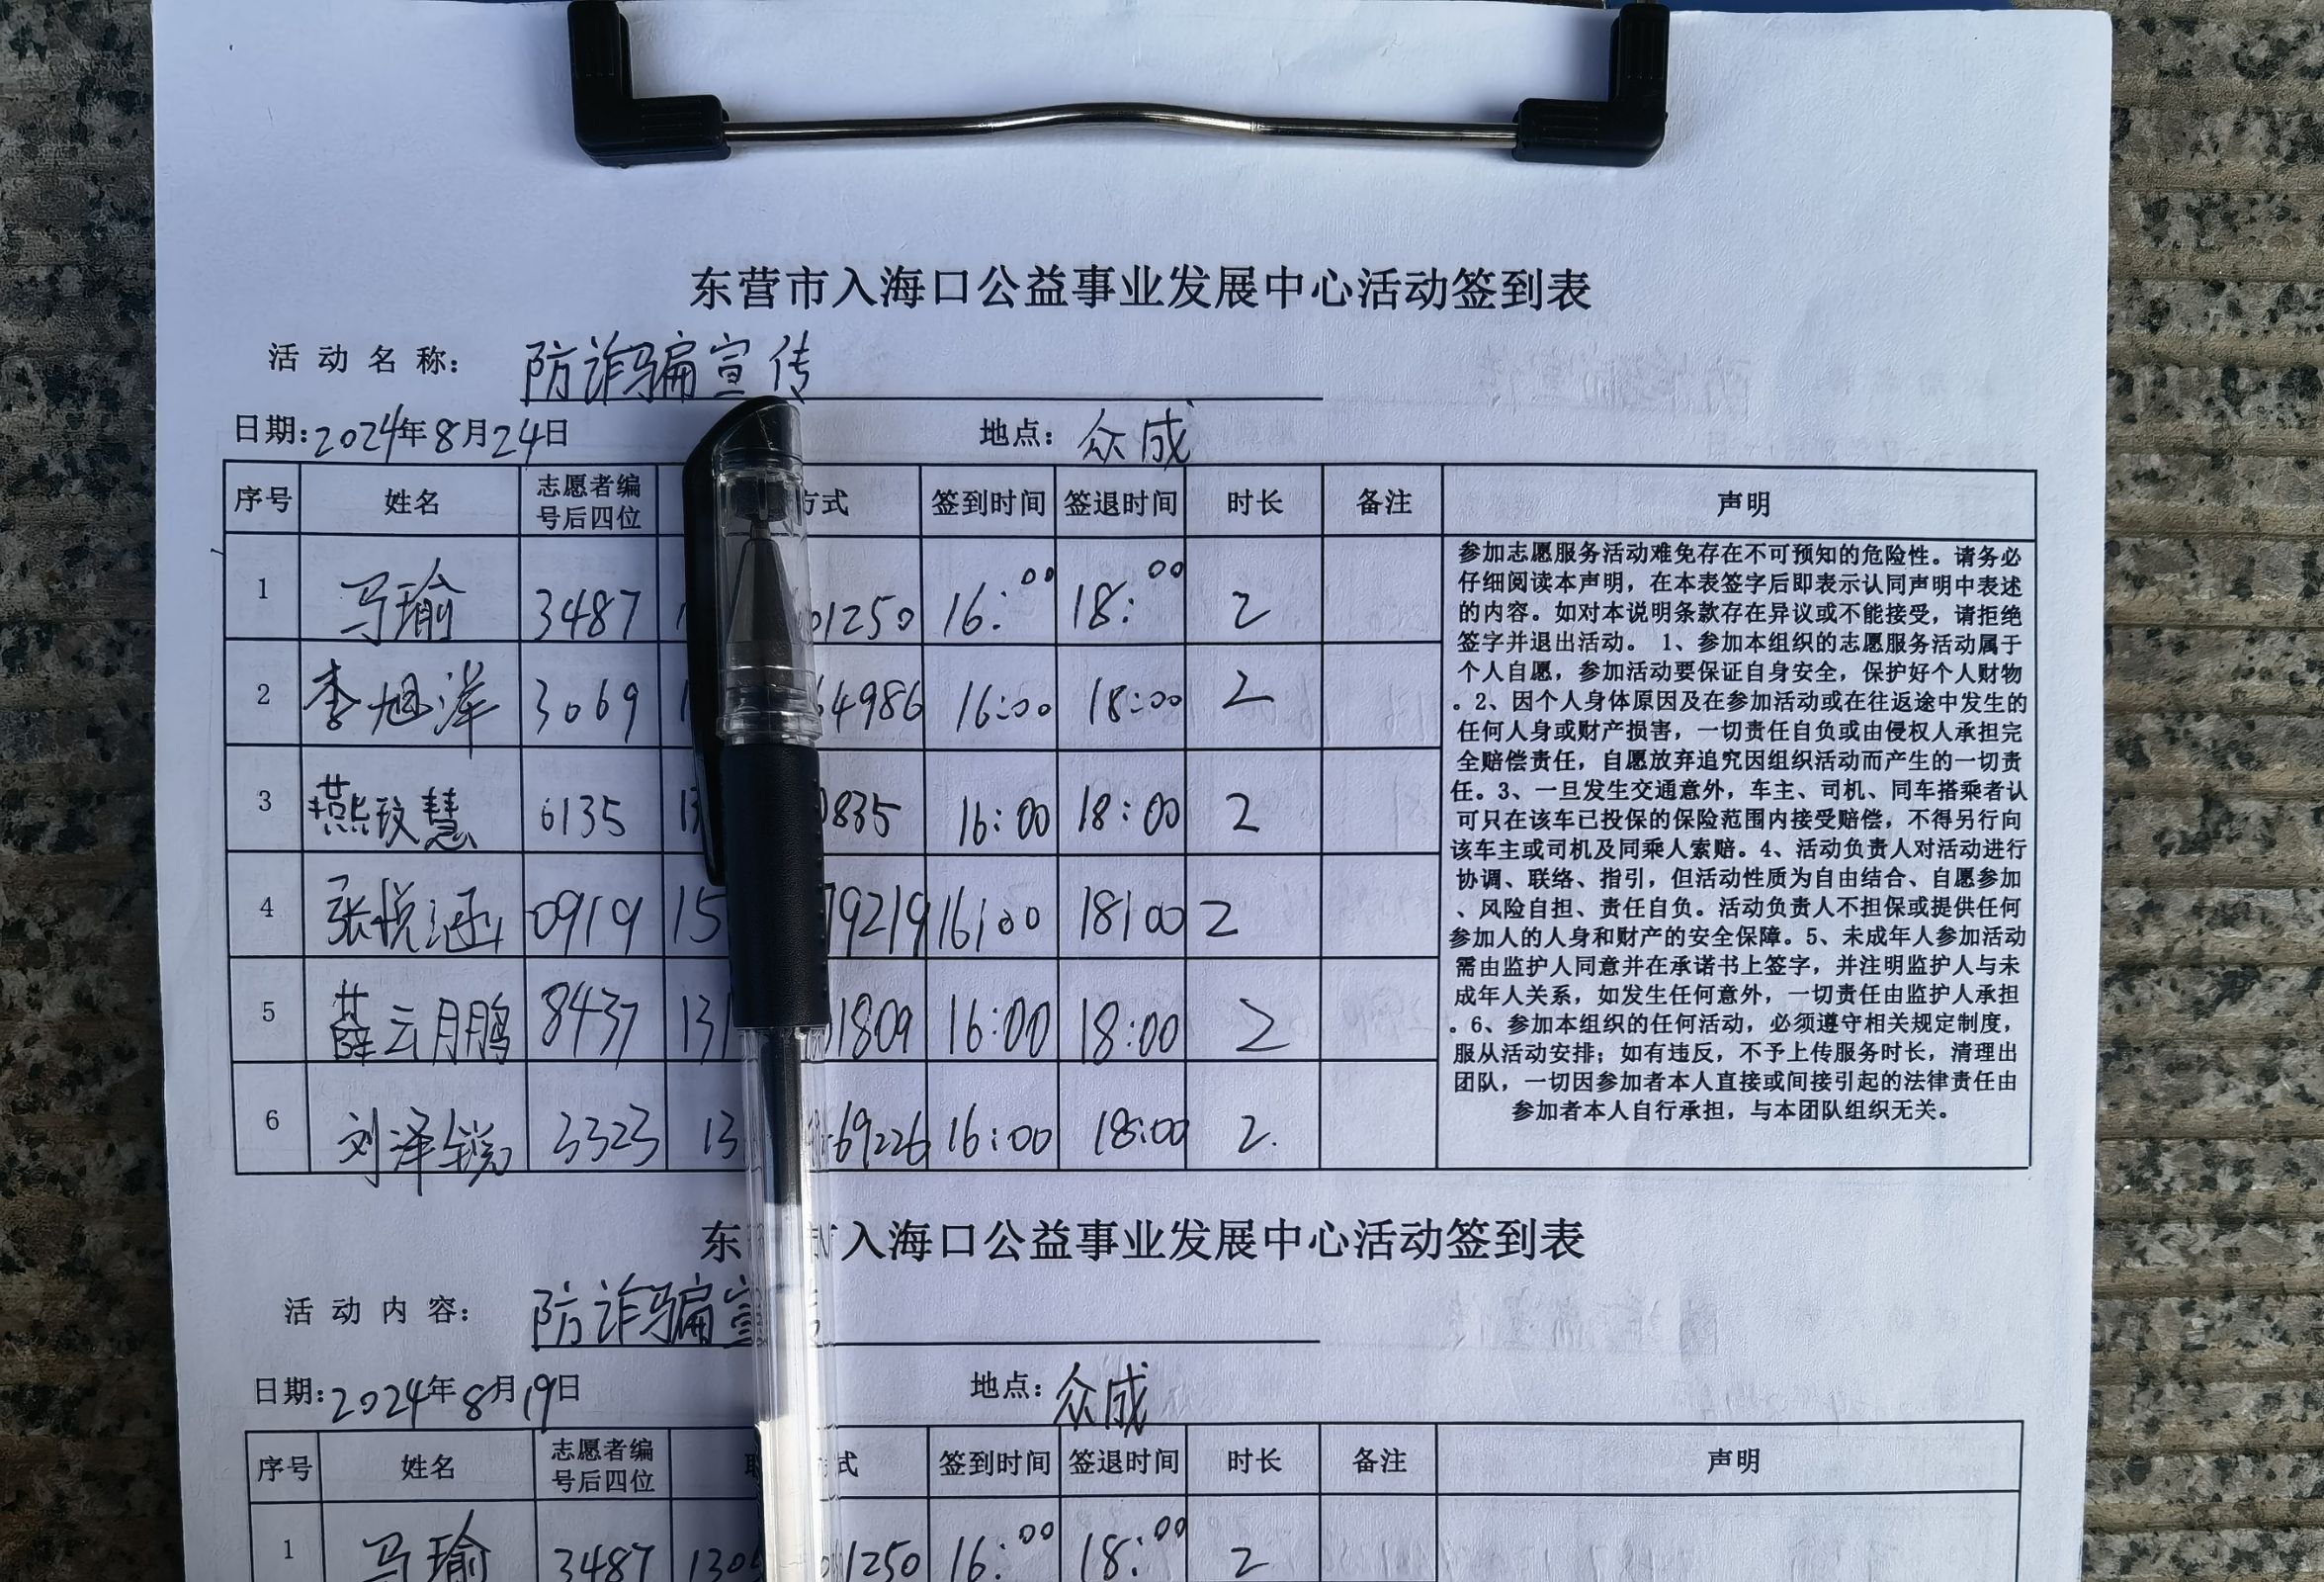 东营市入海口公益事业发展中心活动签到表
活动名称： 防诈骗宣传
日期：2024年8月24日 地点：众成
序号 姓名 志愿者编号后四位 方式 签到时间 签退时间 时长 备注 声明
1 马瑜 3487 1 01250 16:00 18:00 2
2 李旭洋 3069 1 64986 16:00 18:00 2
3 燕玟慧 6135 13 0835 16:00 18:00 2
4 张悦涵 0919 15 79219 16:00 18:00 2
5 薛云月鹏 8437 131 1809 16:00 18:00 2
6 刘泽锐 3323 13 69226 16:00 18:00 2.
参加志愿服务活动难免存在不可预知的危险性。请务必
仔细阅读本声明，在本表签字后即表示认同声明中表述
的内容。如对本说明条款存在异议或不能接受，请拒绝
签字并退出活动。 1、参加本组织的志愿服务活动属于
个人自愿，参加活动要保证自身安全，保护好个人财物
。2、因个人身体原因及在参加活动或在往返途中发生的
任何人身或财产损害，一切责任自负或由侵权人承担完
全赔偿责任，自愿放弃追究因组织活动而产生的一切责
任。3、一旦发生交通意外，车主、司机、同车搭乘者认
可只在该车已投保的保险范围内接受赔偿，不得另行向
该车主或司机及同乘人索赔。4、活动负责人对活动进行
协调、联络、指引，但活动性质为自由结合、自愿参加
、风险自担、责任自负。活动负责人不担保或提供任何
参加人的人身和财产的安全保障。5、未成年人参加活动
需由监护人同意并在承诺书上签字，并注明监护人与未
成年人关系，如发生任何意外，一切责任由监护人承担
。6、参加本组织的任何活动，必须遵守相关规定制度，
服从活动安排；如有违反，不予上传服务时长，清理出
团队，一切因参加者本人直接或间接引起的法律责任由
参加者本人自行承担，与本团队组织无关。
东 入海口公益事业发展中心活动签到表
活动内容： 防诈骗宣
日期：2024年8月19日 地点：众成
序号 姓名 志愿者编号后四位 式 签到时间 签退时间 时长 备注 声明
1 马瑜 3487 130 01250 16:00 18:00 2